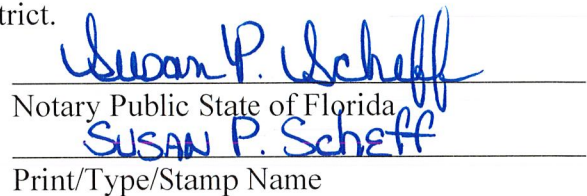 trict.
Susan P. Scheff
Notary Public State of Florida
SUSAN P. Scheff
Print/Type/Stamp Name